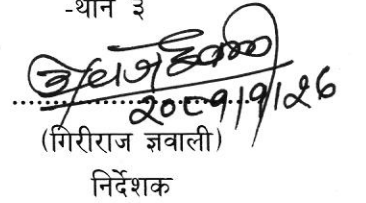 -थान ३
२०८१।१।२६
(गिरीराज ज्ञवाली)
निर्देशक